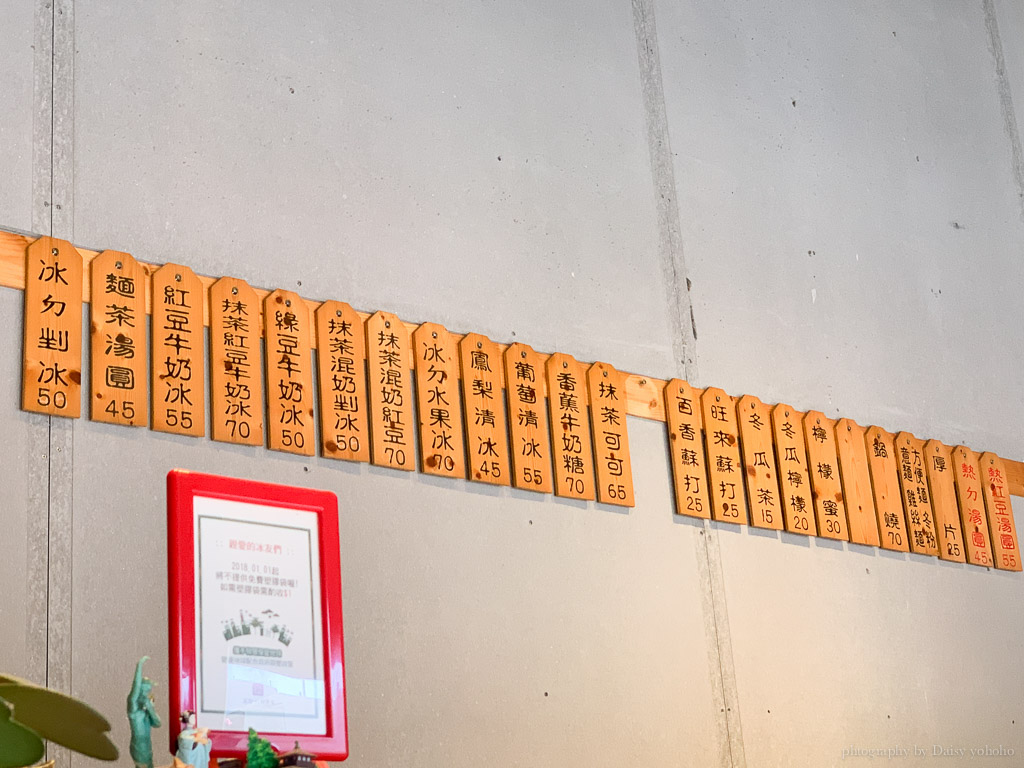 冰勺剉冰 50
麵茶湯圓 45
紅豆牛奶冰 55
抹茶紅豆牛奶冰 70
綠豆牛奶冰 50
抹茶混奶剉冰 50
抹茶混奶紅豆 70
冰勺水果冰 70
鳳梨清冰 45
葡萄清冰 55
香蕉牛奶糖 70
抹茶可可 65
百香蘇打 25
旺來蘇打 25
冬瓜茶 15
冬瓜檸檬 20
檸檬蜜 30
鍋燒 70
意麵 雞絲麵
方便麵 冬粉
厚片 25
熱勺湯圓 45
熱紅豆湯圓 55
親愛的冰友們
2018.01.01起
將不提供免費塑膠袋喔!
如需塑膠袋需酌收$1
photography by Daisy yohoho